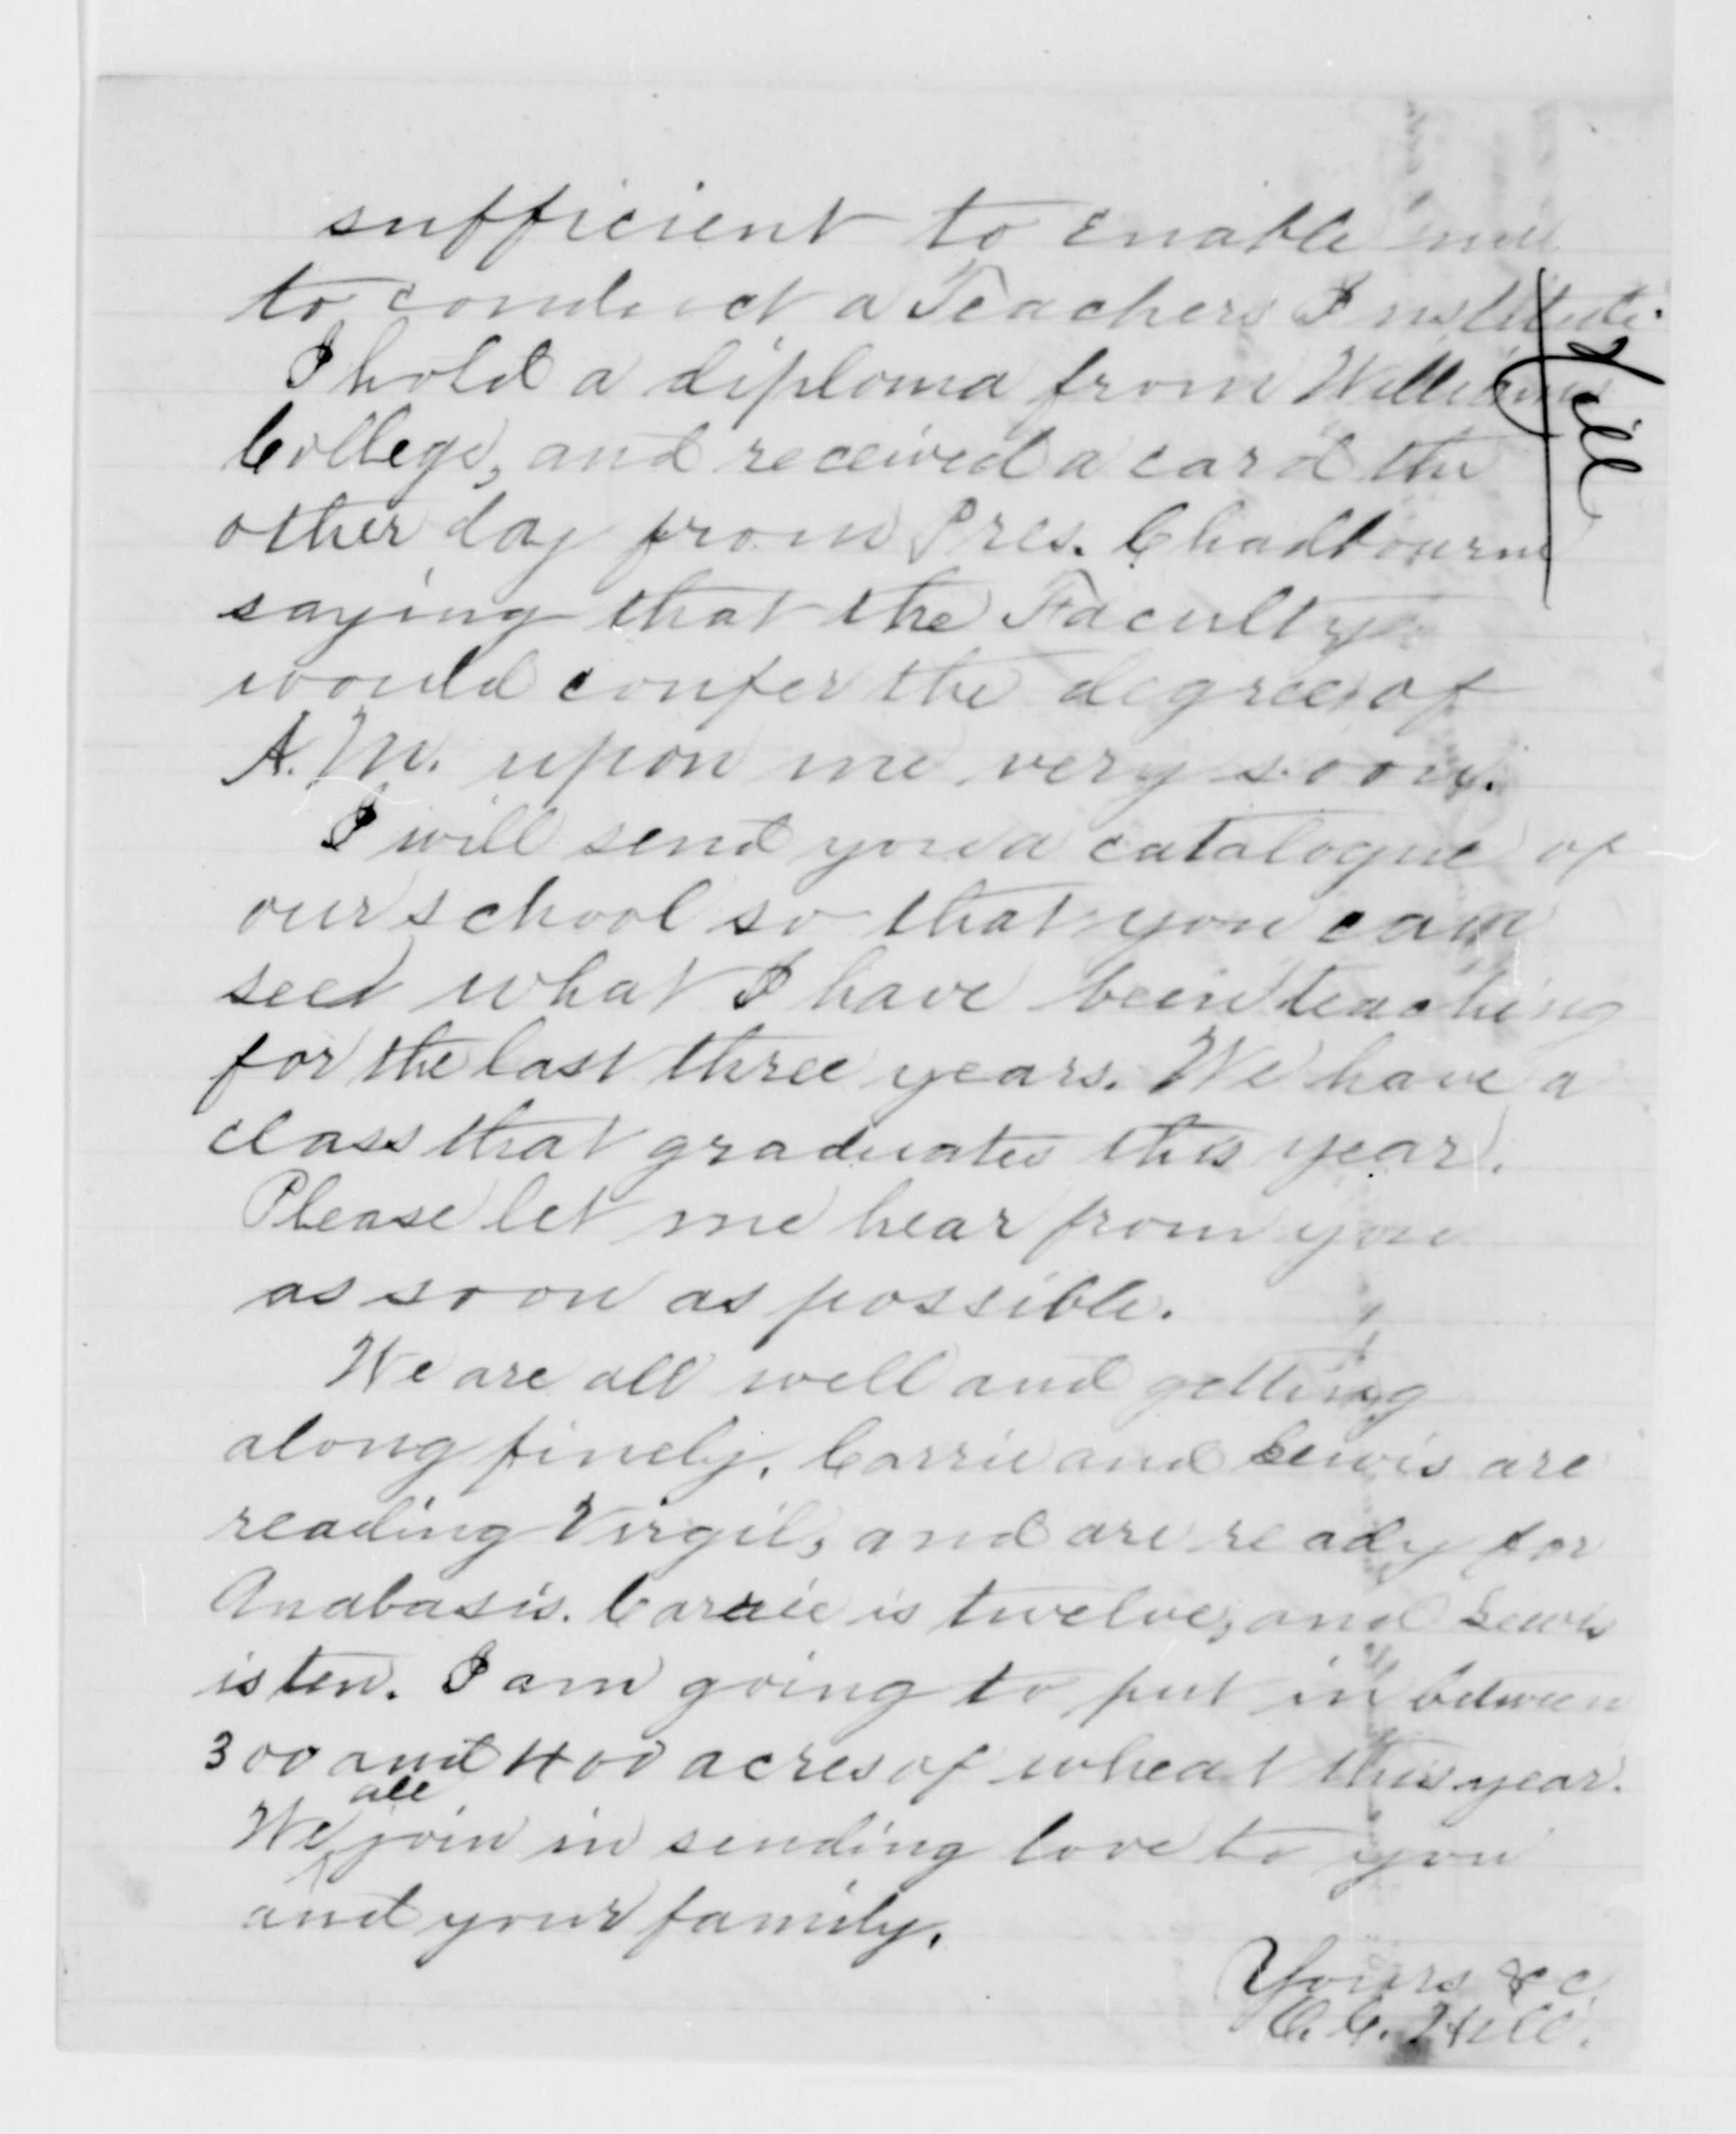 sufficient to enable me
to conduct a Teachers Institute.
I hold a diploma from Williams
College, and received a card the
other day from Pres. Chadbourne
saying that the Faculty
would confer the degree of
A.M. upon me very soon.
I will send you a catalogue of
our school so that you can
see what I have been teaching
for the last three years. We have a
class that graduates this year.
Please let me hear from you
as soon as possible.
We are all well and getting
along finely. Carrie and Lewis are
reading Virgil, and are ready for
Anabasis. Carrie is twelve, and Lewis
is ten. I am going to put in between
300 and 400 acres of wheat this year.
We all join in sending love to you
and your family.
Yours &c.
C. C. Hill.
Hill